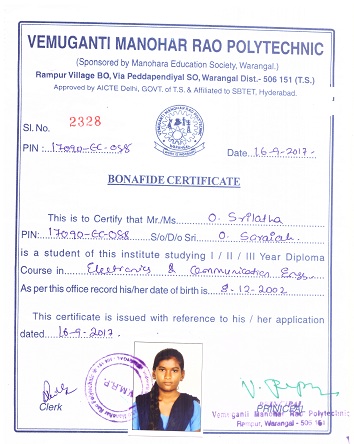 VEMUGANTI MANOHAR RAO POLYTECHNIC
(Sponsored by Manohara Education Society, Warangal.)
Rampur Village BO, Via Peddapendiyal SO, Warangal Dist.- 506 151 (T.S.)
Approved by AICTE Delhi, GOVT. of T.S. & Affiliated to SBTET, Hyderabad.
Sl. No. 2328
PIN : 17090-EC-058 Date 16-9-2017.
BONAFIDE CERTIFICATE
This is to Certify that Mr./Ms. O. Srilatha
PIN: 17090-EC-058 S/o/D/o Sri O. Saraiah
is a student of this institute studying I / II / III Year Diploma
Course in Electronics & Communication Engg.
As per this office record his/her date of birth is 8-12-2002
This certificate is issued with reference to his / her application
dated 16-9-2017.
V.M.R.P.
Clerk PRINICPAL
Vemuganti Manohar Rao Polytechnic
Rampur, Warangal - 506 151